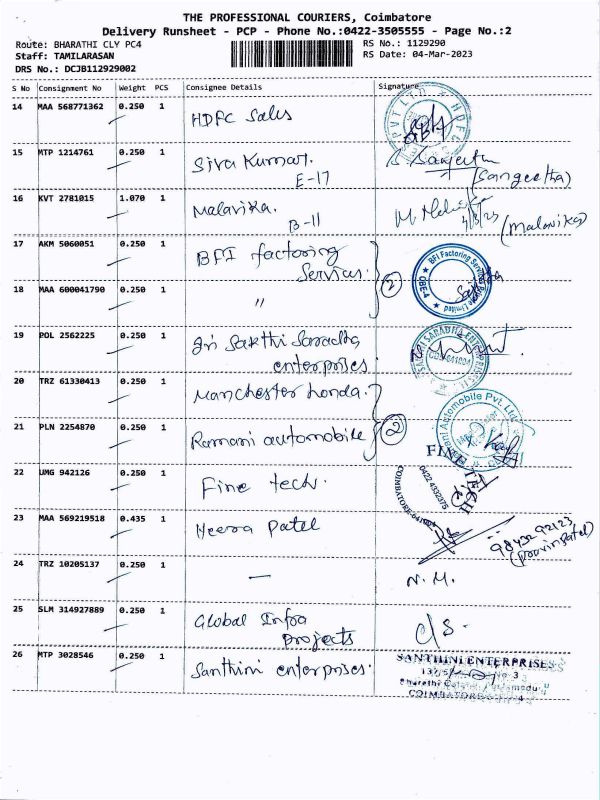 THE PROFESSIONAL COURIERS, Coimbatore
Delivery Runsheet - PCP - Phone No.:0422-3505555 - Page No.:2
Route: BHARATHI CLY PC4
RS No.: 1129290
Staff: TAMILARASAN
RS Date: 04-Mar-2023
DRS No.: DCJB112929002
S No Consignment No Weight PCS Consignee Details Signature
14 MAA 568771362 0.250 1 HDFC Sales
15 MTP 1214761 0.250 1 Siva Kumar.
E-17
(Sangeetha)
16 KVT 2781015 1.070 1 Malavika.
B-11
(Malavika)
17 AKM 5060051 0.250 1 BFI factoring
Services.
2
BFI Factoring Services Private Limited
CBE-4
18 MAA 600041790 0.250 1 "
19 POL 2562225 0.250 1 Sri Sakthi Saradha
enterprises
20 TRZ 61330413 0.250 1 Manchester honda.
2
21 PLN 2254870 0.250 1 Ramani automobile
Automobile Pvt. Ltd.
22 UMG 942126 0.250 1 Fine tech.
FINE TECH
0422 4332375
23 MAA 569219518 0.435 1 Heera Patel
24 TRZ 10205137 0.250 1 —
N.M.
25 SLM 314927889 0.250 1 Global Infra
Projects
C/S.
26 MTP 3028546 0.250 1 Santhini enterprises.
SANTHINI ENTERPRISES